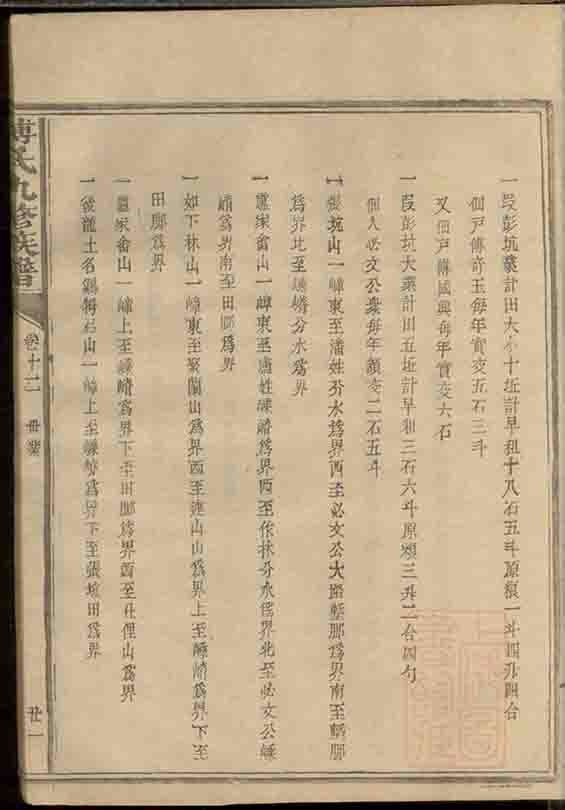 一段彭坑蔂計田大小十坵計早租十八石五斗原糧一斗四升四合
佃戸傅奇玉每年實交五石三斗
又佃戸傅國興每年實交六石
一段彭坑大蔂計田五坵計早租三石六斗原額三升二合四勺
佃人必文公蔂每年額交二石五斗
一彭坑山一嶂東至潘姓分水為界西至必文公大路墼脚為界南至墼脚
為界北至嵊嶙分水為界
一蘆家畲山一嶂東至盧姓嵊嶙為界西至作林分水為界北至必文公嵊
嶙為界南至田脚為界
一如下林山一嶂東至聚蘭山為界西至連山山為界上至嵊嶙為界下至
田脚為界
一蘆家畲山一嶂上至嵊嶙為界下至田脚為界西至社俚山為界
一後龍土名鷄石山一嶂上至嵊嶙為界下至張坡田為界
傅氏九修族譜
卷十二
廿一